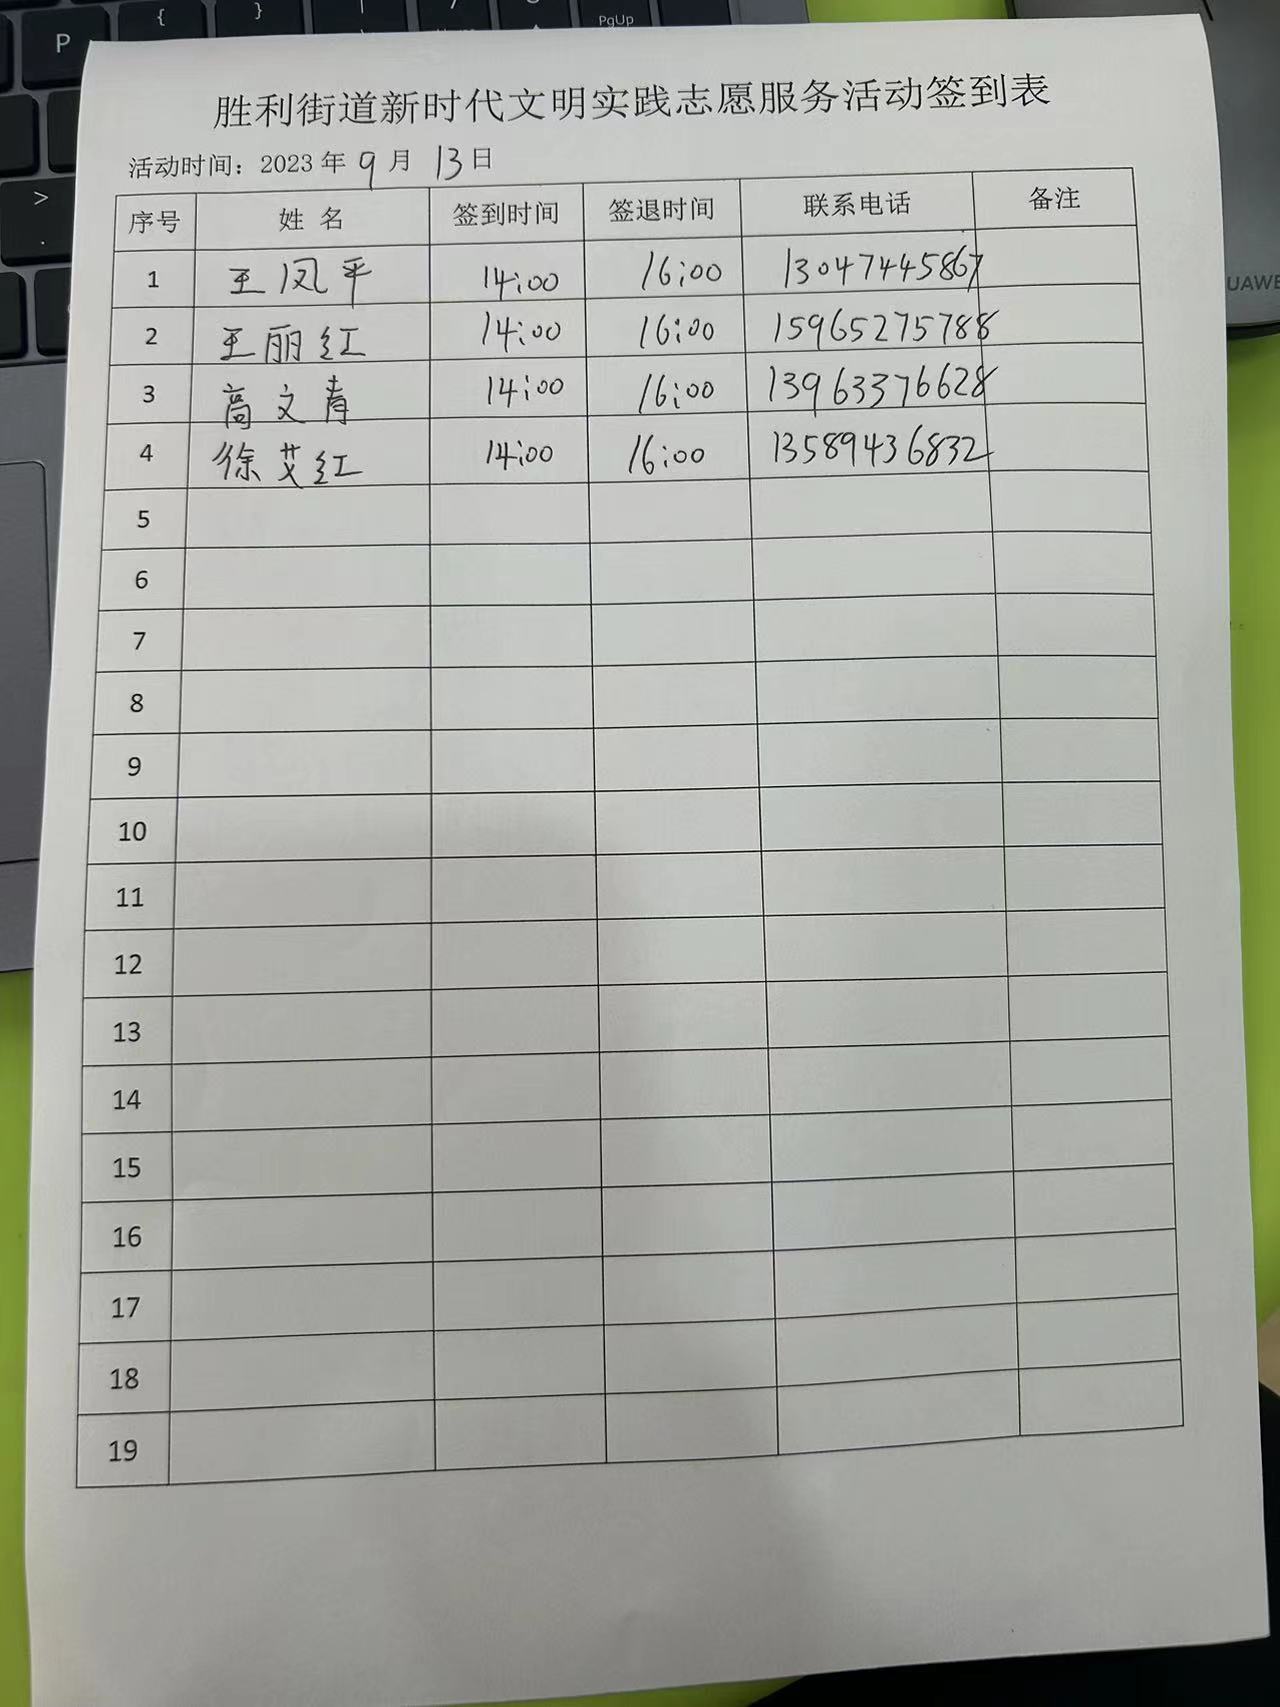 P
{
}
PgUp
>
.
UAWE
胜利街道新时代文明实践志愿服务活动签到表
活动时间：2023年9月13日
序号 姓名 签到时间 签退时间 联系电话 备注
1 王凤平 14:00 16:00 13047445867
2 王丽红 14:00 16:00 15965275788
3 高文青 14:00 16:00 13963376628
4 徐艾红 14:00 16:00 13589436832
5
6
7
8
9
10
11
12
13
14
15
16
17
18
19